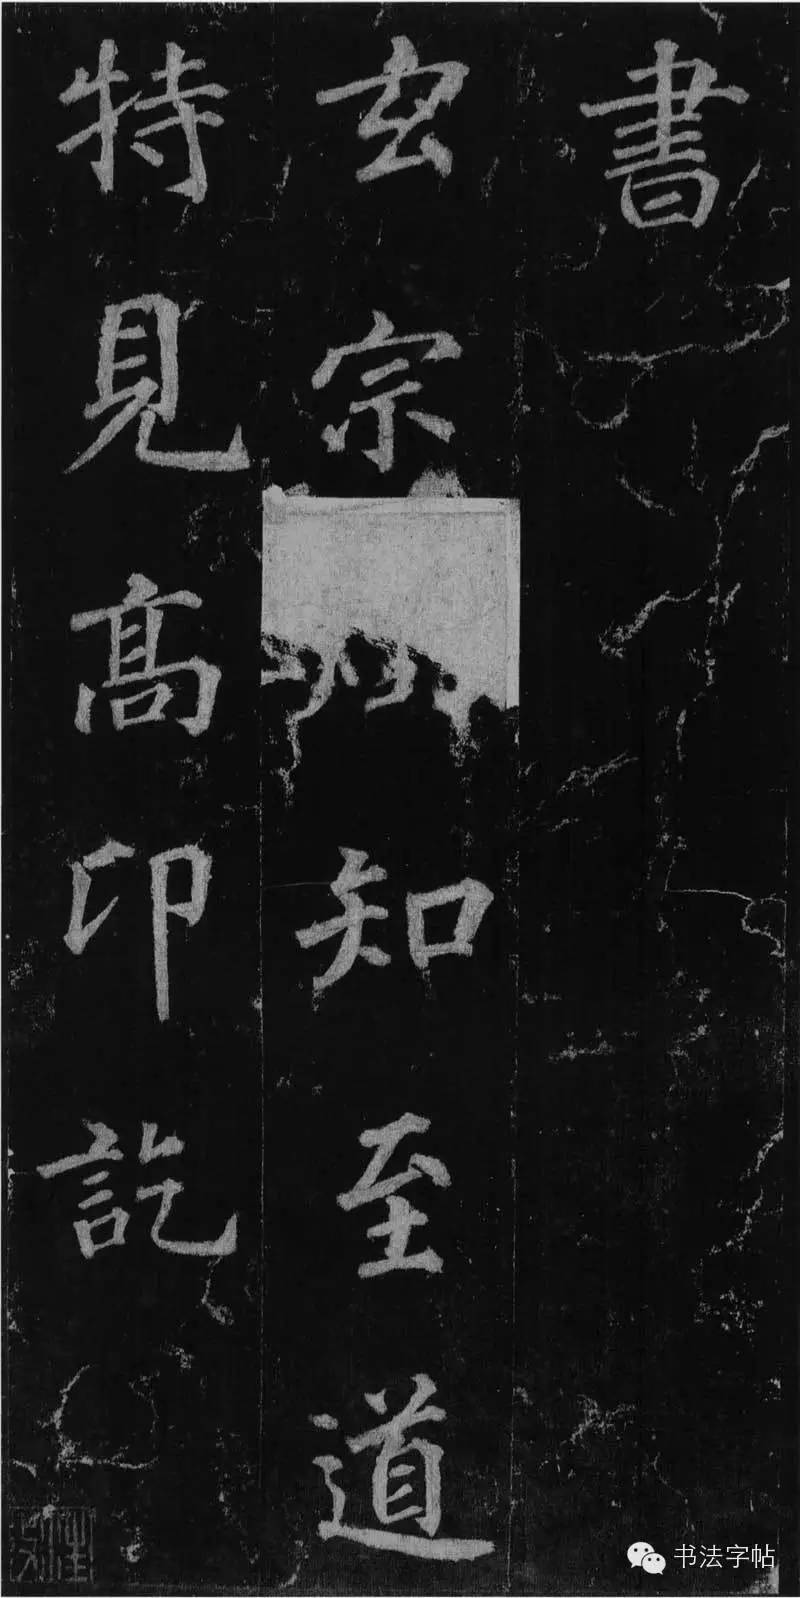 書
玄宗知至道
特見高印訖
书法字帖